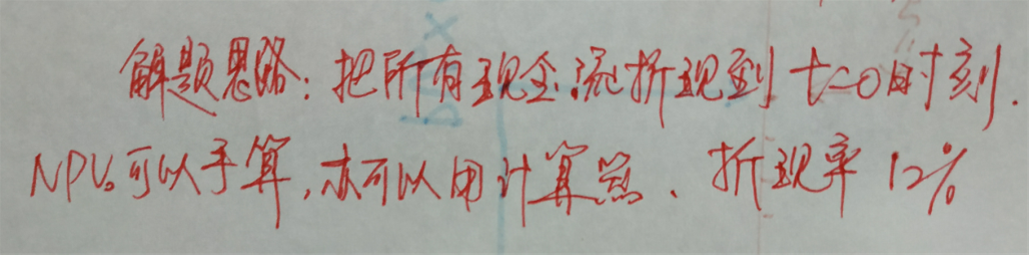 解题思路：把所有现金流折现到 t=0时刻.
NPV。可以手算，亦可以用计算器、折现率 12%